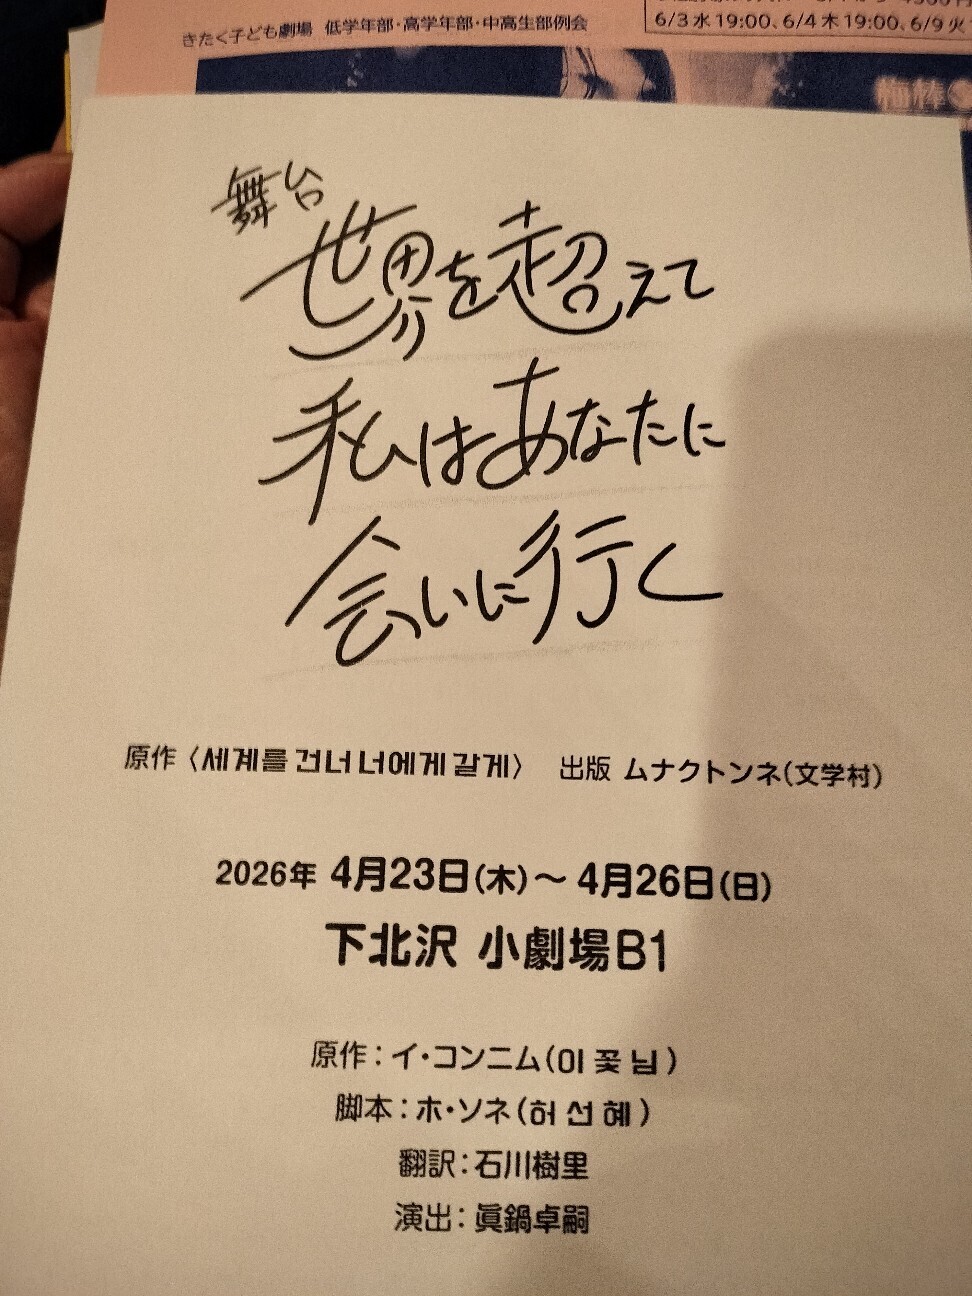 きたく子ども劇場 低学年部・高学年部・中高生部例会
6/3水19:00、6/4木19:00、6/9火
梅棒
舞台
世界を超えて
私はあなたに
会いに行く
原作〈세계를 건너 너에게 갈게〉 出版 ムナクトンネ(文学村)
2026年 4月23日(木)〜4月26日(日)
下北沢 小劇場B1
原作：イ・コンニム(이꽃님)
脚本：ホ・ソネ(허선혜)
翻訳：石川樹里
演出：眞鍋卓嗣